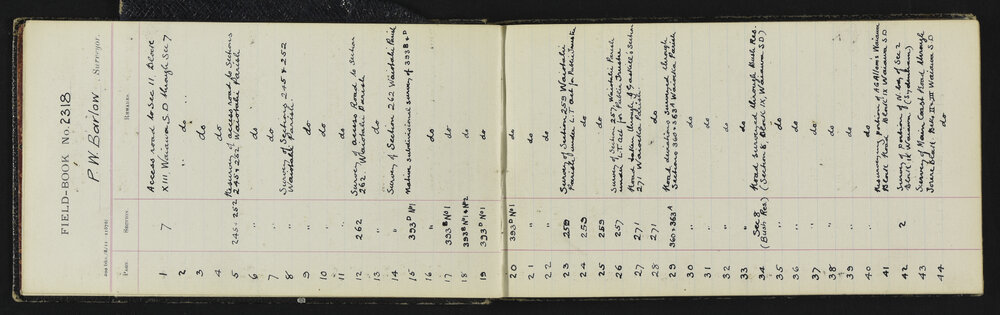 FIELD-BOOK No. 2318
P. W. Barlow Surveyor.
Page Section Remarks.
1 7 Access road to Sec 11 Block XIII, Waiaua S.D through Sec 7
2 " do
3 " do
4 " do
5 245 - 252 Resurvey of access road, to Sections 245 & 252 Waiotahi Parish
6 " do
7 " do
8 " Survey of Sections 245 & 252 Waiotahi Parish
9 " do
10 " do
11 " do
12 262 Survey of access Road to Section 262 Waiotahi Parish
13 " do
14 " Survey of Section 262 Waiotahi Parish
15 393D No 1 Native subdivisional survey of 393B & D
16 " do
17 393B No 1 do
18 393B No 1 & No 2 do
19 393D No 1 do
20 393D No 1 do
21 " do
22 " do
23 259 Survey of Section 259 Waiotahi Parish under L.T. act for Public Trustee
24 259 do
25 259 do
26 257 Survey of Section 257, Waiotahi Parish under L.T. act for Public Trustee
27 271 Road taken through Section 271 Waioeka Parish
28 271 do
29 360 & 363A Road deviations surveyed through Sections 360 & 363A Waioeka Parish
30 " do
31 " do
32 " do
33 " do
34 Sec 8 (Bush Res) Road surveyed through Bush Res. (Section 8, Block IX, Waiaua S.D)
35 " do
36 " do
37 " do
38 " do
39 " do
40 " do
41 " Resurveying portion of A G Allom's Waiaua Block Road Block IX Waiaua S.D
42 2 Survey of portion of N. bdy of Sec 2 Block IX Waiaua
43 Survey of Main Coast Road through Torere Block Blks II & III Waiaua S.D
44 do